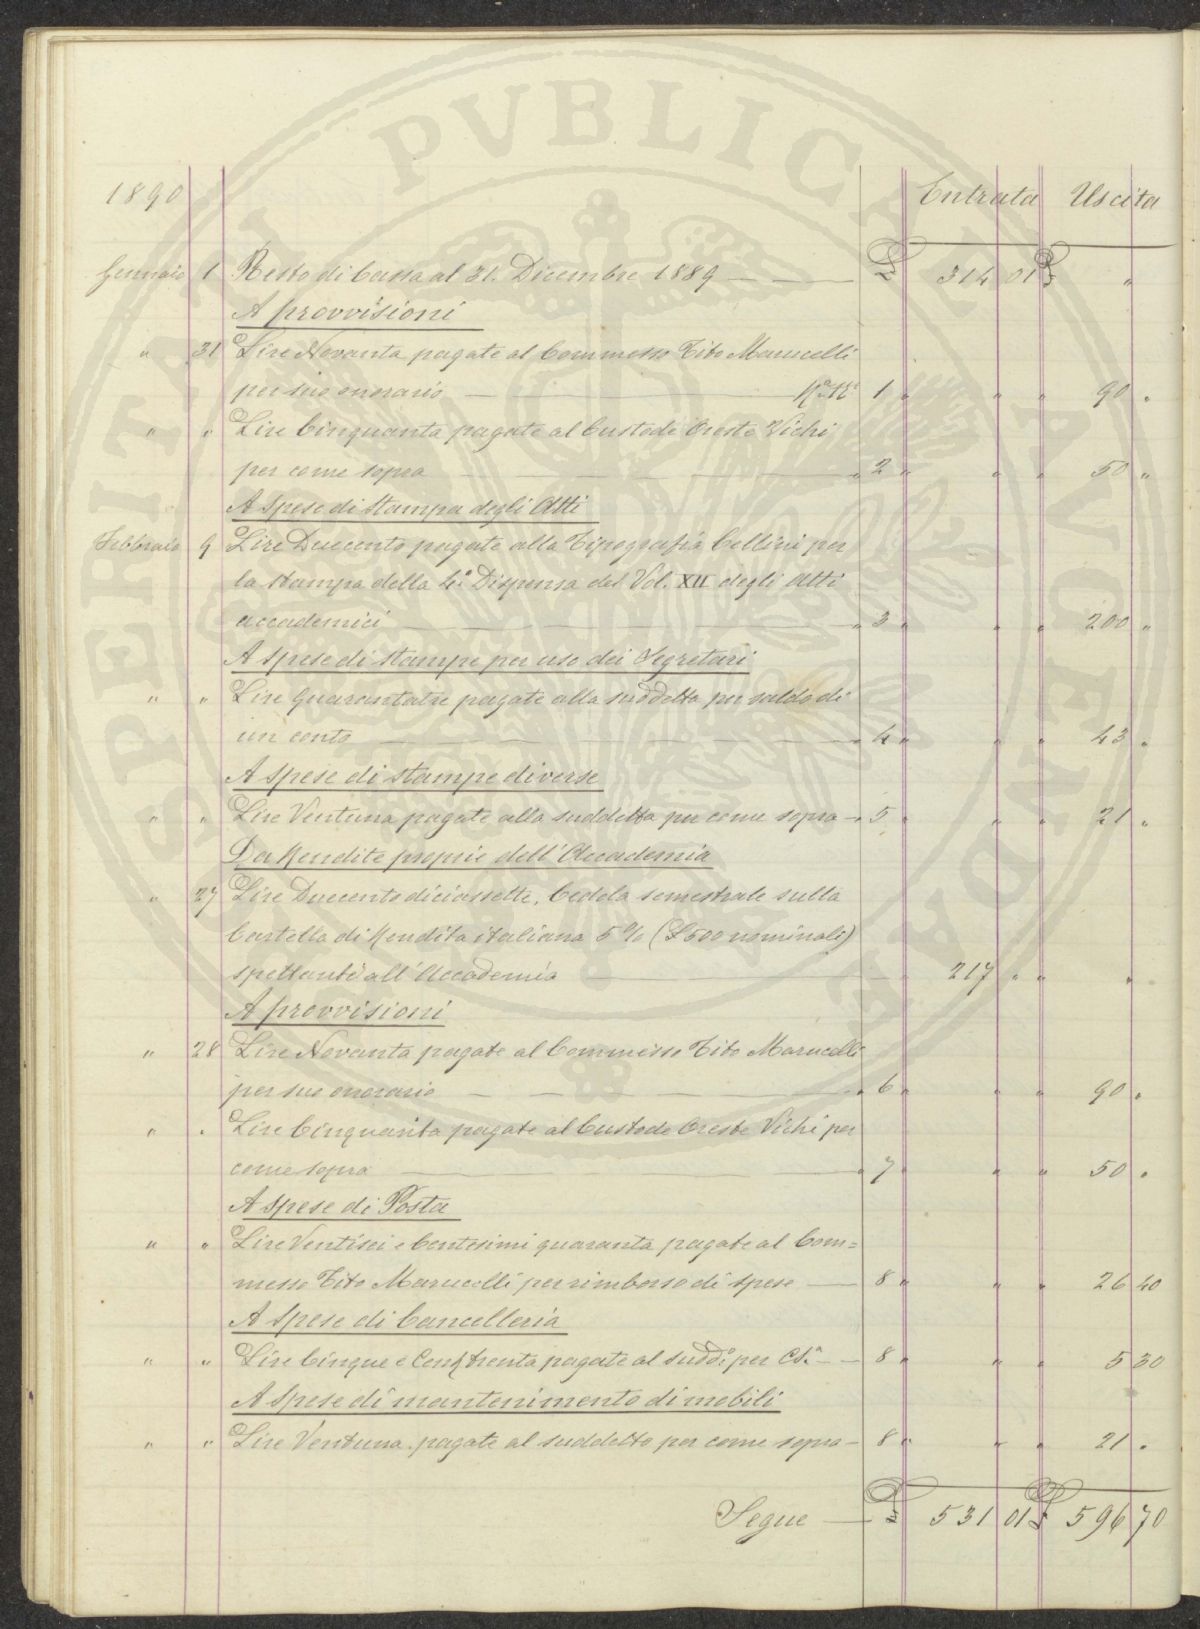 1890 Entrata Uscita
Gennaio 1 Resto di Cassa al 31. Dicembre 1889 — £ 314 01 £ "
A provvisioni
" 31 Lire Novanta pagate al Commesso Tito Marucelli
per suo onorario — 1 " " " 90 "
" " Lire Cinquanta pagate al Custode Oreste Vichi
per come sopra — " 2 " " " 50 "
A Spese di Stampa degli Atti
Febbraio 9 Lire Duecento pagate alla Tipografia Cellini per
la stampa della 4a Dispensa del Vol. XII degli Atti
accademici — " 3 " " " 200 "
A spese di stampe per uso dei Segretari
" " Lire Quarantatre pagate alla suddetta per saldo di
un conto — " 4 " " " 43 "
A Spese di stampe diverse
" " Lire Ventuna pagate alla suddetta per come sopra — " 5 " " " 21 "
Da Rendite proprie dell'Accademia
" 27 Lire Duecentodiciassette, Cedola semestrale sulla
Cartella di Rendita italiana 5 % (£ 500 nominali)
spettante all'Accademia — 217 " " "
A provvisioni
" 28 Lire Novanta pagate al Commesso Tito Marucelli
per suo onorario — " 6 " " " 90 "
" " Lire Cinquanta pagate al Custode Oreste Vichi per
come sopra — " 7 " " " 50 "
A spese di Posta
" " Lire Ventisei e Centesimi quaranta pagate al Com=
messo Tito Marucelli per rimborso di spese — 8 " " " 26 40
A Spese di Cancelleria
" " Lire Cinque e Cent. trenta pagate al sudd.o per C.S.a — 8 " " " 5 30
A Spese di mantenimento di mobili
" " Lire Ventuna pagate al suddetto per come sopra — 8 " " " 21 "
Segue — £ 531 01 £ 596 70